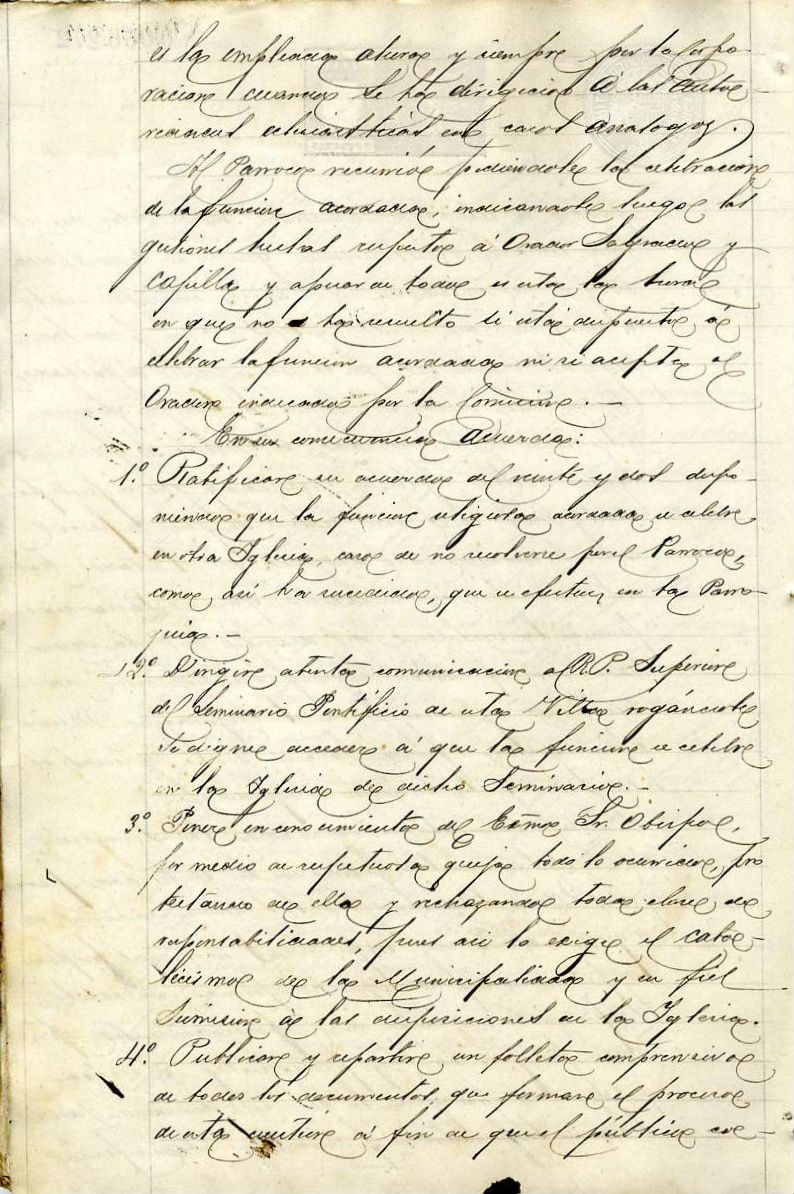 es la empleada ahora y siempre por la Corpo-
racion cuando se ha dirigido á las Auto-
ridades eclesiásticas en casos analogos.
Al Parroco recurrió pidiendole la celebracion
de la funcion acordada, indicandole luego las
gestiones hechas respecto á Orador Sagrado y
Capilla y apesar de todo es esta la hora
en que no ha resuelto si está dispuesto á
celebrar la funcion acordada ni si acepta el
Orador indicado por la Comision.—
En su consecuencia Acuerda:
1.º Ratificar su acuerdo del veinte y dos dispo-
niendo que la funcion religiosa acordada se celebre
en otra Iglesia, caso de no resolverse por el Parroco,
como así ha sucedido, que se efectue en la Parro-
quia.—
2.º Dirigir atenta comunicacion al R. P. Superior
del Seminario Pontificio de esta Villa rogándole
se digne acceder á que la funcion se celebre
en la Iglesia de dicho Seminario.—
3.º Poner en conocimiento del Exmo Sr. Obispo,
por medio de respetuosa queja todo lo ocurrido, pro
testando de ello y rechazando toda clase de
responsabilidades, pues asi lo exige el cato-
licismo de la Municipalidad y su fiel
sumision á las disposiciones de la Iglesia.
4.º Publicar y repartir un folleto comprensivo
de todos los documentos que forman el proceso
de esta cuestion á fin de que el público co-